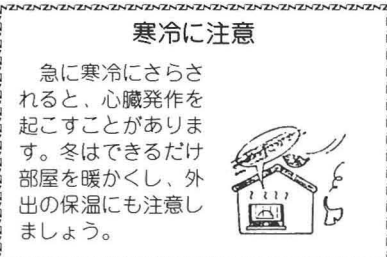 寒冷に注意
急に寒冷にさらさ
れると、心臓発作を
起こすことがありま
す。冬はできるだけ
部屋を暖かくし、外
出の保温にも注意し
ましょう。